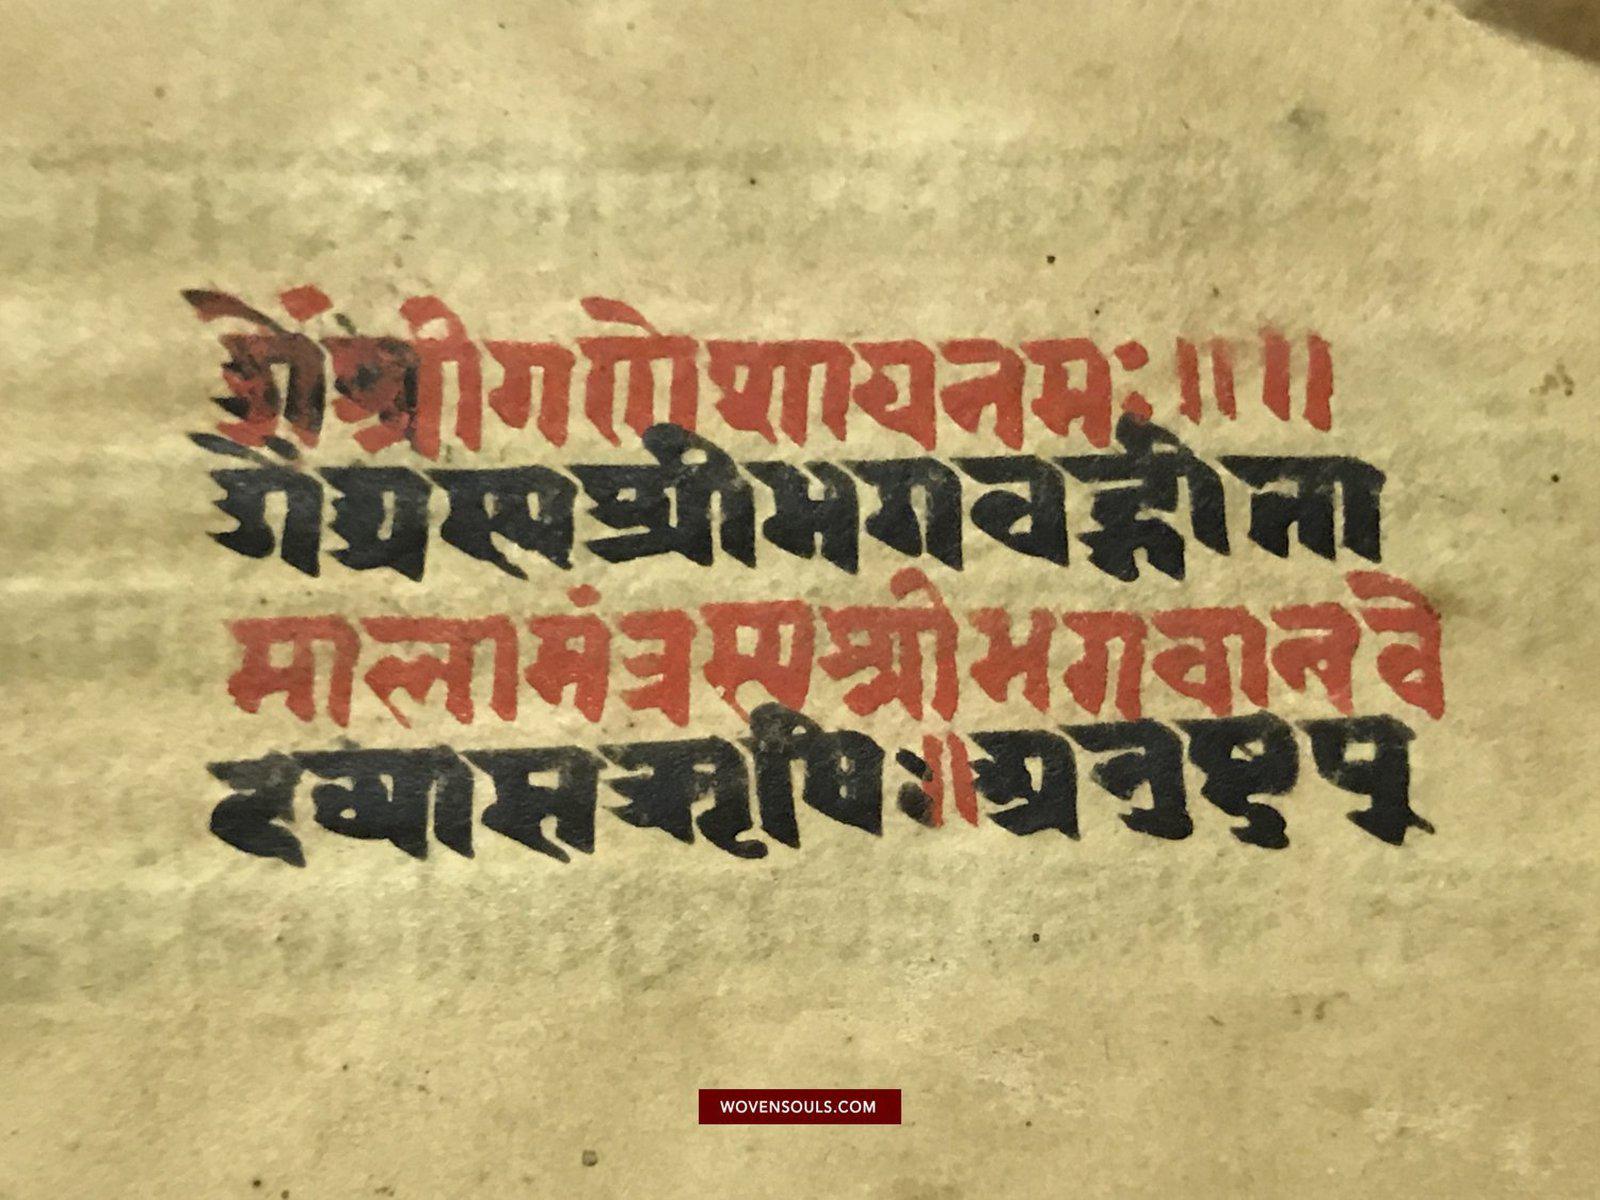 ओंश्रीगणेशायनमः॥॥
ओंअस्यश्रीभगवद्गीता
मालामंत्रस्यश्रीभगवानवे
दव्यासऋषिः॥अनुष्टुप्
WOVENSOULS.COM